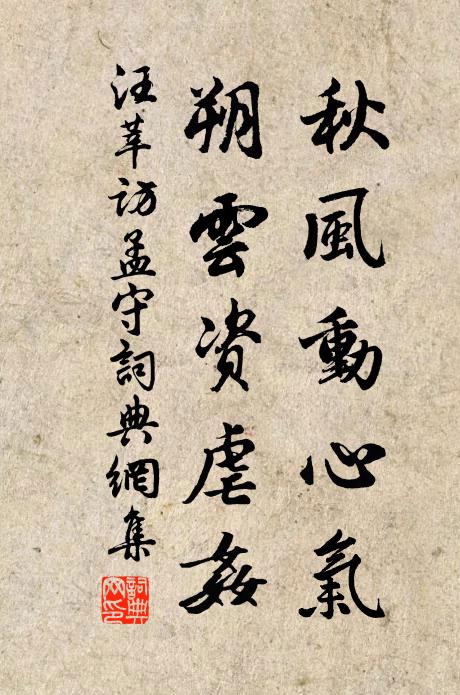 秋風動心氣
朔雲資虐姦
汪莘訪孟守詞典網集
詞典
網印